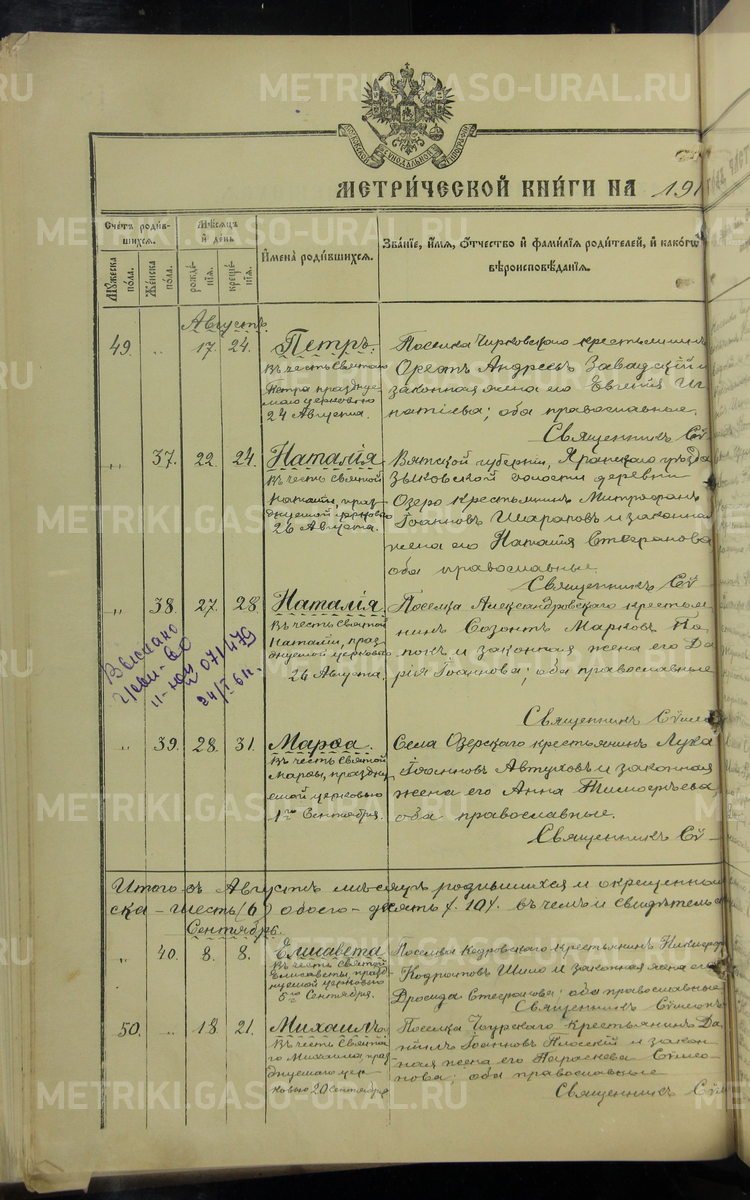 МЕТРИ́ЧЕСКОЙ КНИ́ГИ НА 191
Сче́тъ роди́в-
шихся.
Му́жеска по́ла.
Же́нска по́ла.
Мѣ́сяцъ
и҆ де́нь
рожде́нїя.
креще́нїя.
И҆мена̀ роди́вшихся.
Зва́нїе, и҆́мя, ѻ҆́тчество и҆ фами́лїя роди́телей, и҆ како́гѡ
вѣроисповѣ́данїя.
Августъ
49. „ 17. 24. Петръ.
Въ честь Святаго
Петра праздну-
емаго церковію
24 Августа.
Поселка Чирковскаго крестьянинъ
Орестъ Андреевъ Завадскій и
законная жена его Евгенія Иг
натіева; оба православные.
Священникъ Сѵ
„ 37. 22. 24. Наталія
Въ честь Святой
Наталіи, праз-
днуемой церковію
26 Августа.
Вятской губерніи, Яранскаго уѣзда
Зыковской волости деревни
Озеро крестьянинъ Митрофанъ
Іоанновъ Шараповъ и законная
жена его Наталія Стефанова
оба православные.
Священникъ Сѵ
„ 38. 27. 28. Наталія
Въ честь Святой
Наталіи, праз-
днуемой церковію
26 Августа.
Поселка Александровскаго крестья
нинъ Созонтъ Марковъ По-
покъ и законная жена его Да
рія Іоаннова; оба православные
Священникъ Сѵмео
Выслано
II-ЮИ 071479
24/I 61г.
„ 39. 28. 31. Марѳа.
Въ честь Святой
Марѳы, праздну
емой церковью
1го Сентября.
Села Озерскаго крестьянинъ Лука
Іоанновъ Автуховъ и законная
жена его Анна Тимофеева
оба православные.
Священникъ Сѵ
Итого въ Августѣ мѣсяцѣ родившихся и окрещенных
ска – шесть (6) обоего – десять /10/. въ чемъ и свидѣтельс
Сентябрь.
„ 40. 8. 8. Елисавета
Въ честь Святой
Елисаветы, празд
нуемой церковью
5го Сентября.
Поселка Кедровскаго крестьянинъ Никифор
Кодратовъ Шило и законная жена его
Дросида Стефанова; оба православные
Священникъ Сѵмеонъ
50. „ 18. 21. Михаилъ.
Въ честь Свята-
го Михаила, праз
днуемаго цер-
ковью 20 Сентября
Поселка крестьянинъ Да
ніилъ Іоанновъ Плоскій и закон-
ная жена его Параскева Сѵмео-
нова; оба православные
Священникъ Сѵ
METRIKI.GASO-URAL.RU